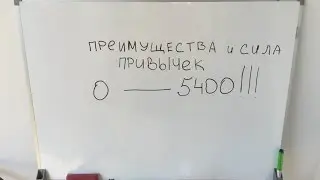 ПРЕИМУЩЕСТВА и СИЛА
ПРИВЫЧЕК
0 — 5400!!!